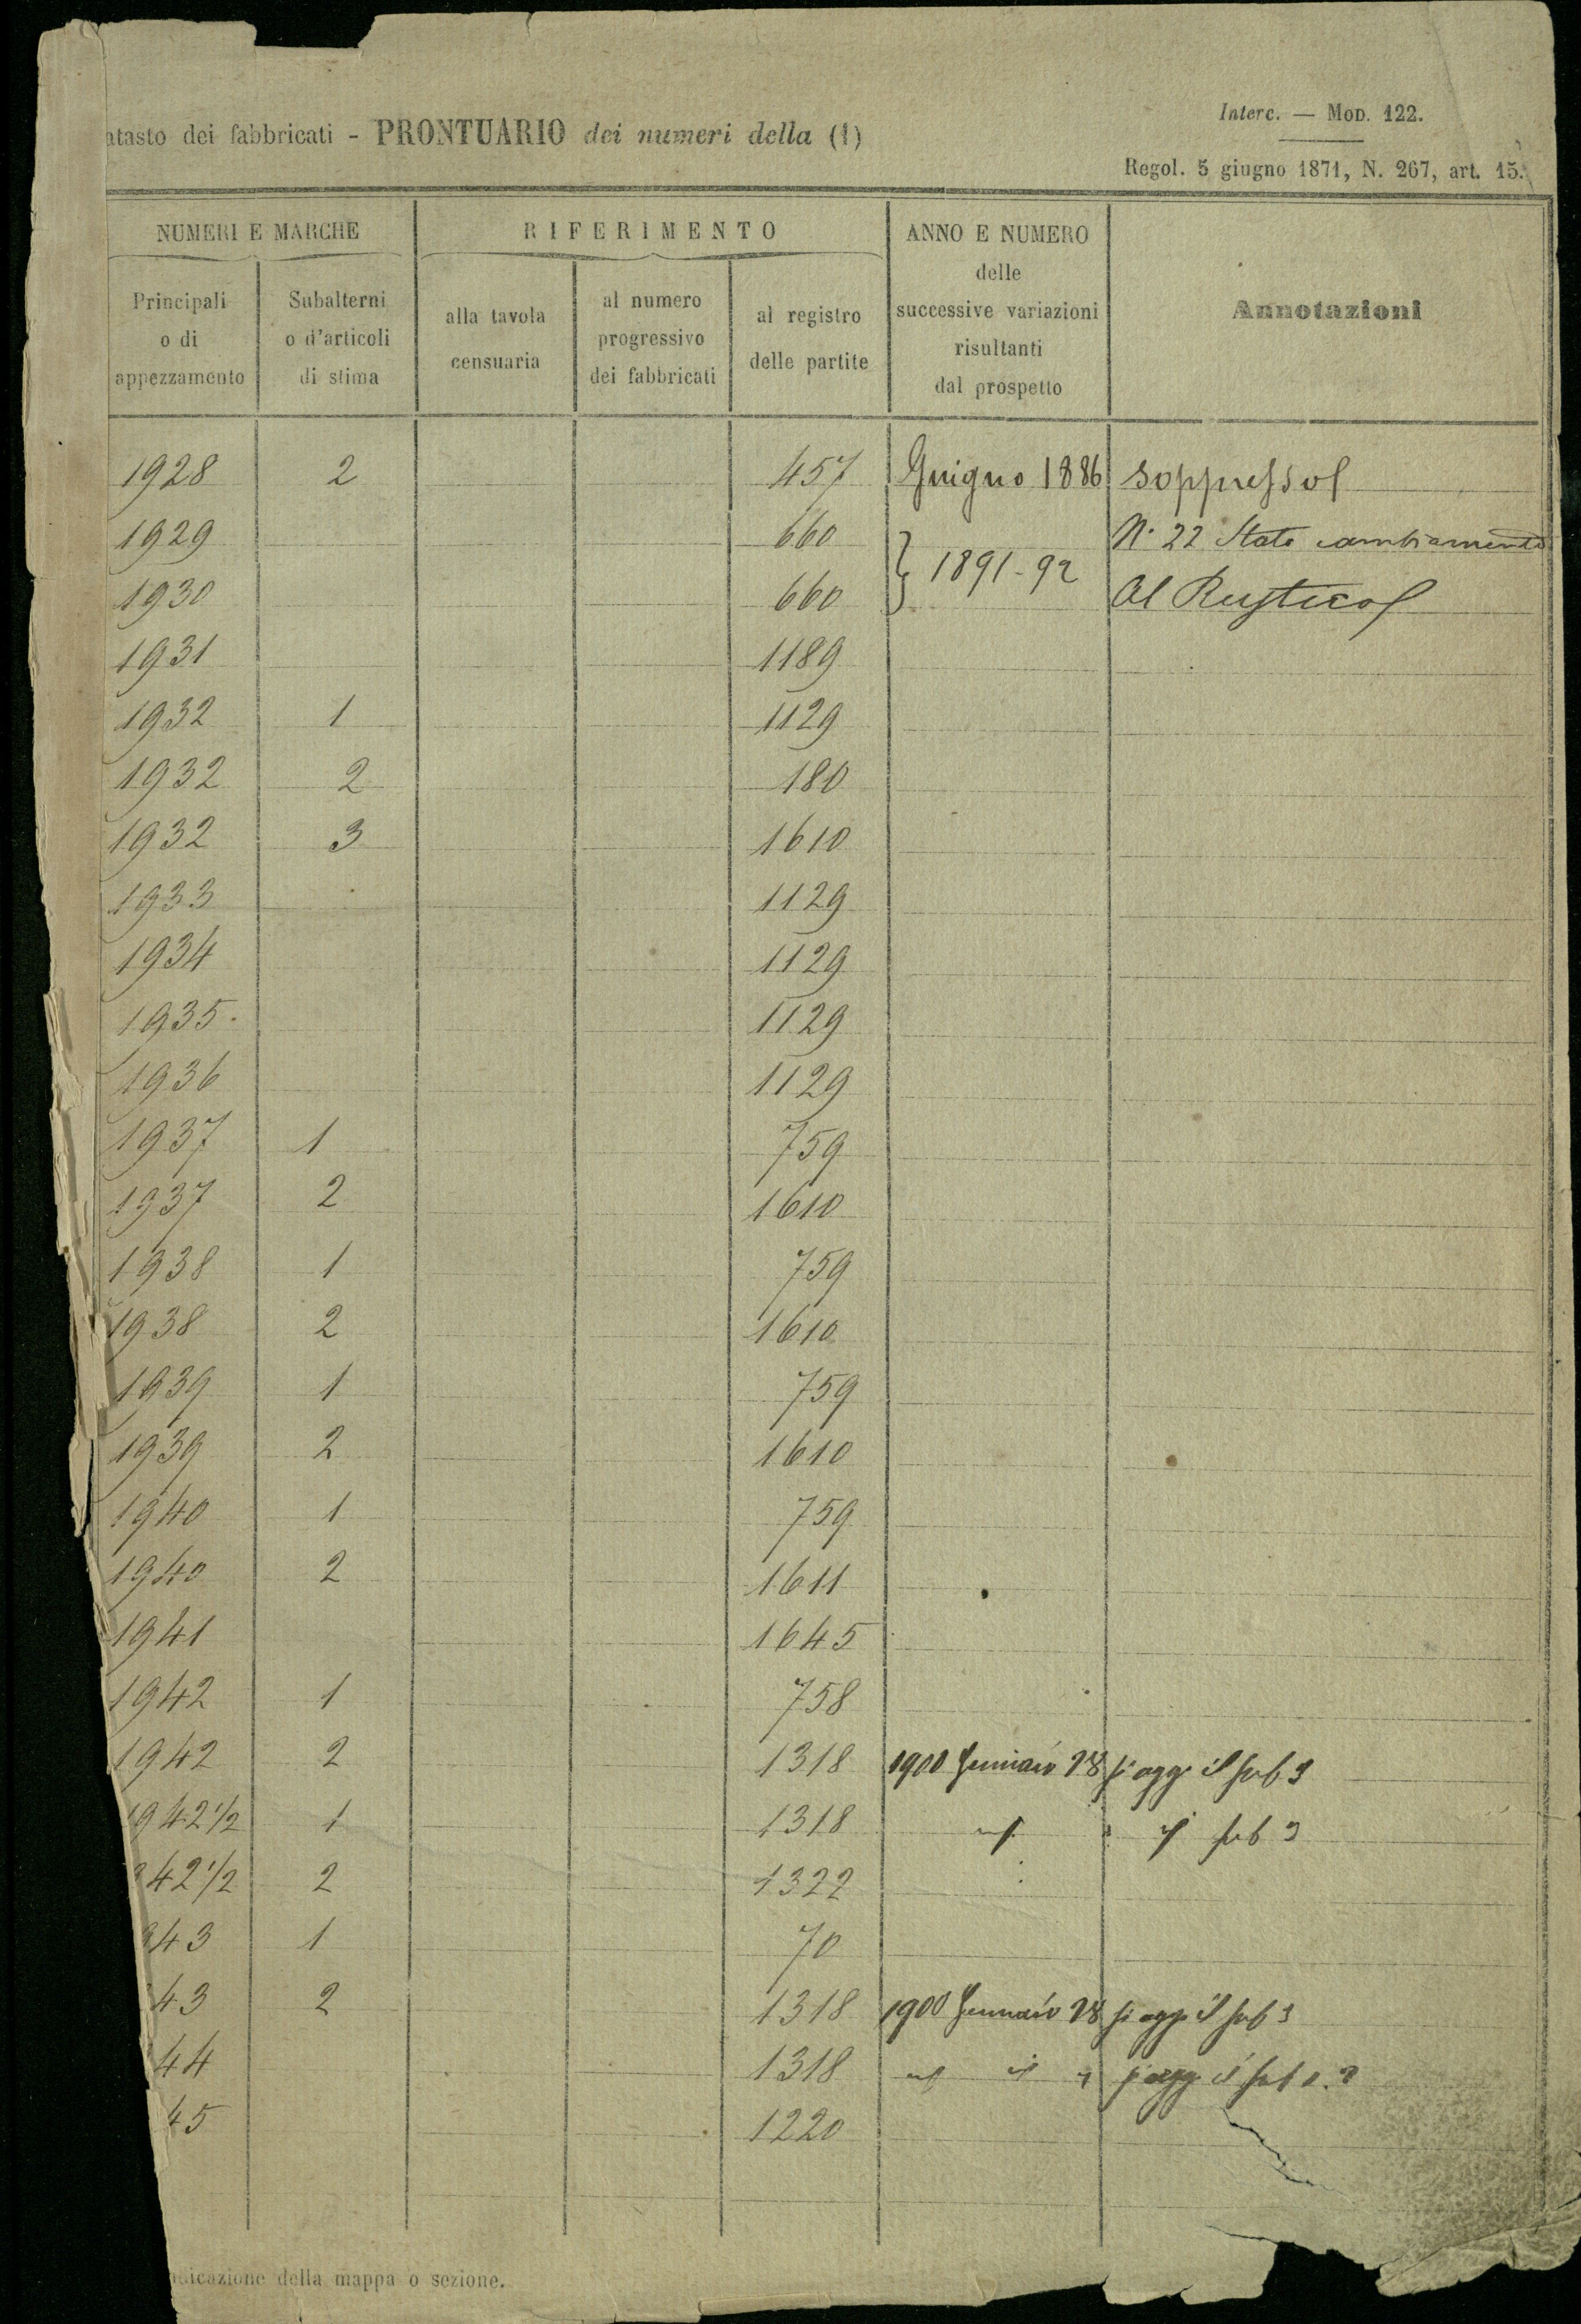 atasto dei fabbricati - PRONTUARIO dei numeri della (1)
Interc. — Mod. 122.
Regol. 5 giugno 1871, N. 267, art. 15.
NUMERI E MARCHE
RIFERIMENTO
ANNO E NUMERO
delle
successive variazioni
risultanti
dal prospetto
Annotazioni
Principali
o di
appezzamento
Subalterni
o d'articoli
di stima
alla tavola
censuaria
al numero
progressivo
dei fabbricati
al registro
delle partite
1928 2 457 Guigno 1886 soppresso
1929 660 N. 22 Stato cambiamento
} 1891-92
1930 660 Al Rustico
1931 1189
1932 1 1129
1932 2 180
1932 3 1610
1933 1129
1934 1129
1935 1129
1936 1129
1937 1 759
1937 2 1610
1938 1 759
1938 2 1610
1939 1 759
1939 2 1610
1940 1 759
1940 2 1611
1941 1645
1942 1 758
1942 2 1318 1900 Gennaio 28 si agg. il sub 3
942 1/2 1 1318 sub 3
42 1/2 2 1322
43 1 70
43 2 1318 1900 Gennaio 28 si agg. il sub 3
44 1318 si agg. il sub
45 1220
dicazione della mappa o sezione.